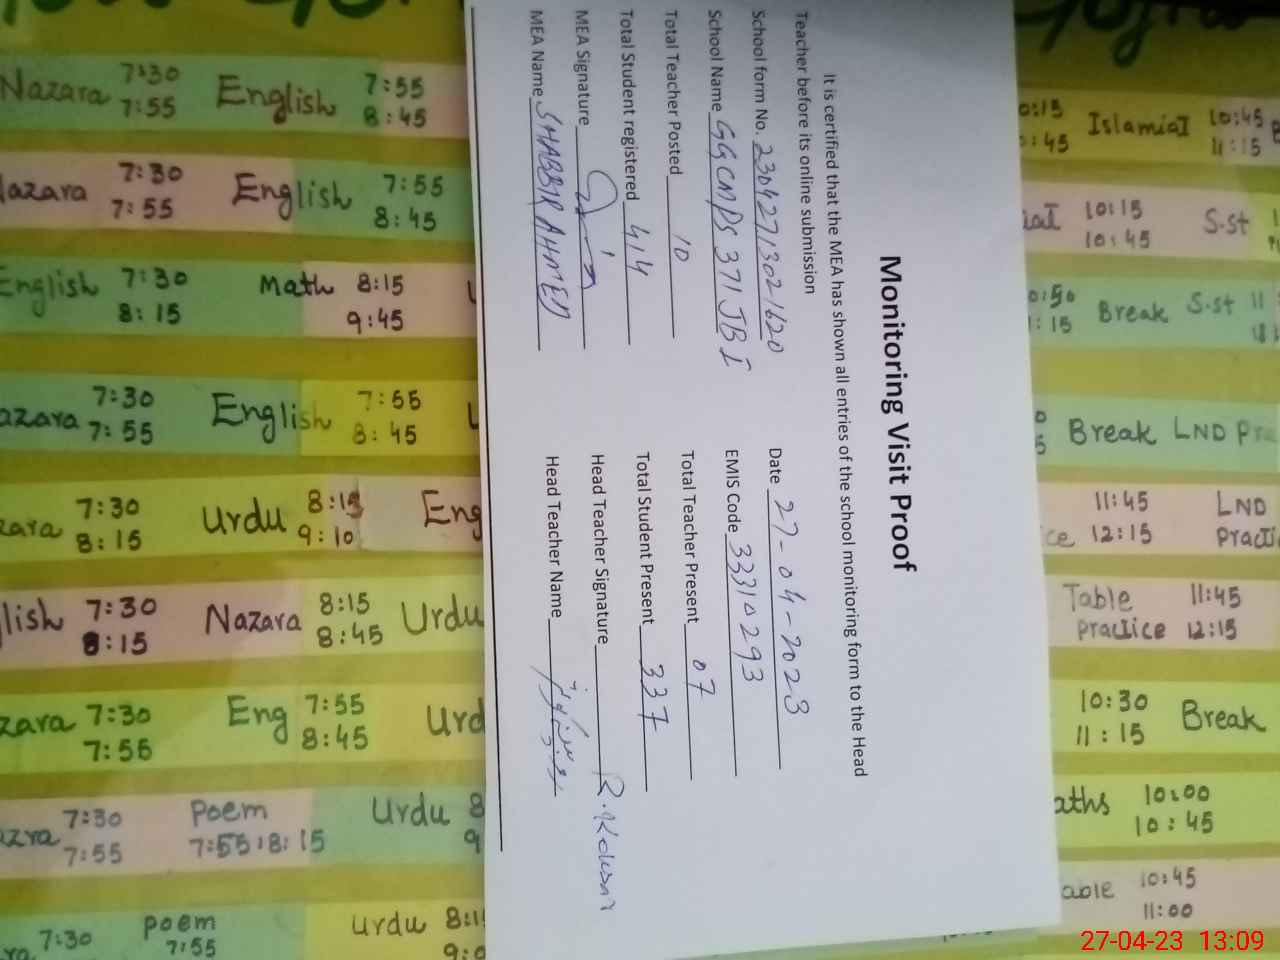 Monitoring Visit Proof
It is certified that the MEA has shown all entries of the school monitoring form to the Head
Teacher before its online submission
School form No. 23042713021620 Date 27-04-2023
School Name GGCMPS 371 JB I EMIS Code 33310293
Total Teacher Posted 10 Total Teacher Present 07
Total Student registered 414 Total Student Present 337
MEA Signature Head Teacher Signature R. Kousar
MEA Name SHABBIR AHMED Head Teacher Name
Nazara 7:30 7:55 English 7:55 8:45
0:15 :45 IslamiaI 10:45 11:15
azara 7:30 7:55 English 7:55 8:45
iaI 10:15 10:45 S.st
English 7:30 8:15 Math 8:15 9:45
0:50 :15 Break S.st 11
azara 7:30 7:55 English 7:55 8:45
Break LND Pra
zara 7:30 8:15 Urdu 8:15 9:10 Eng
ce 11:45 12:15 LND Practi
lish 7:30 8:15 Nazara 8:15 8:45 Urdu
Table Practice 11:45 12:15
zara 7:30 7:55 Eng 7:55 8:45 Urd
10:30 11:15 Break
azra 7:30 7:55 Poem 7:55:8:15 Urdu 8 9
aths 10:00 10:45
able 10:45 11:00
ra 7:30 poem 7:55 Urdu 8:1 9:0
27-04-23 13:09